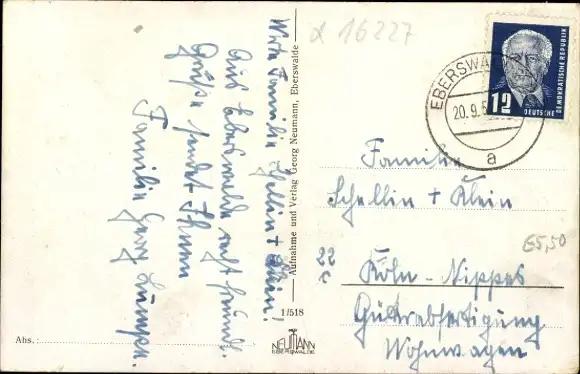 Werte Familie Schellin + Klein!
Aus Eberswalde recht freundl.
Grüße sendet Ihnen
Familie Georg
Abs.
Aufnahme und Verlag Georg Neumann, Eberswalde
1/518
NEUMANN
EBERSWALDE
α 16227
EBERSWALDE
20.9.5
a
12
DEUTSCHE
DEMOKRATISCHE REPUBLIK
Familie
Schellin + Klein
22
c
Köln-Nippes
Güterabfertigung
Wohnwagen
E5,50